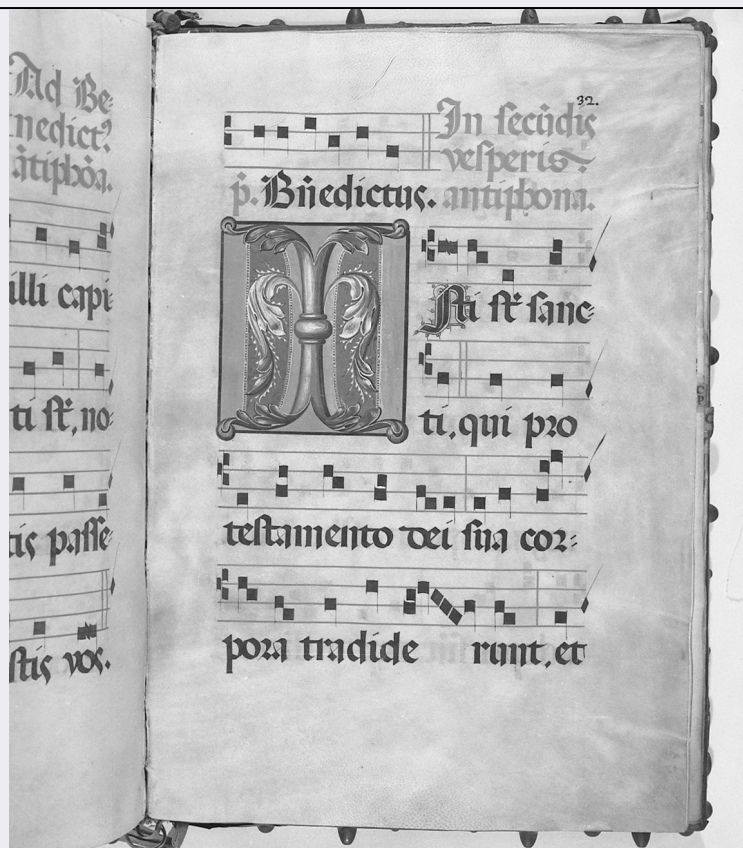 Ad Be-
nedict9
ãtiphõa.
illi capi-
ti st̃, no-
tis passe-
stis vos.
32.
In secũdis
vesperis.
p̃. Bñedictus. antiphona.
Isti st̃ sanc-
ti, qui pro
testamento dei sua cor-
pora tradide runt, et